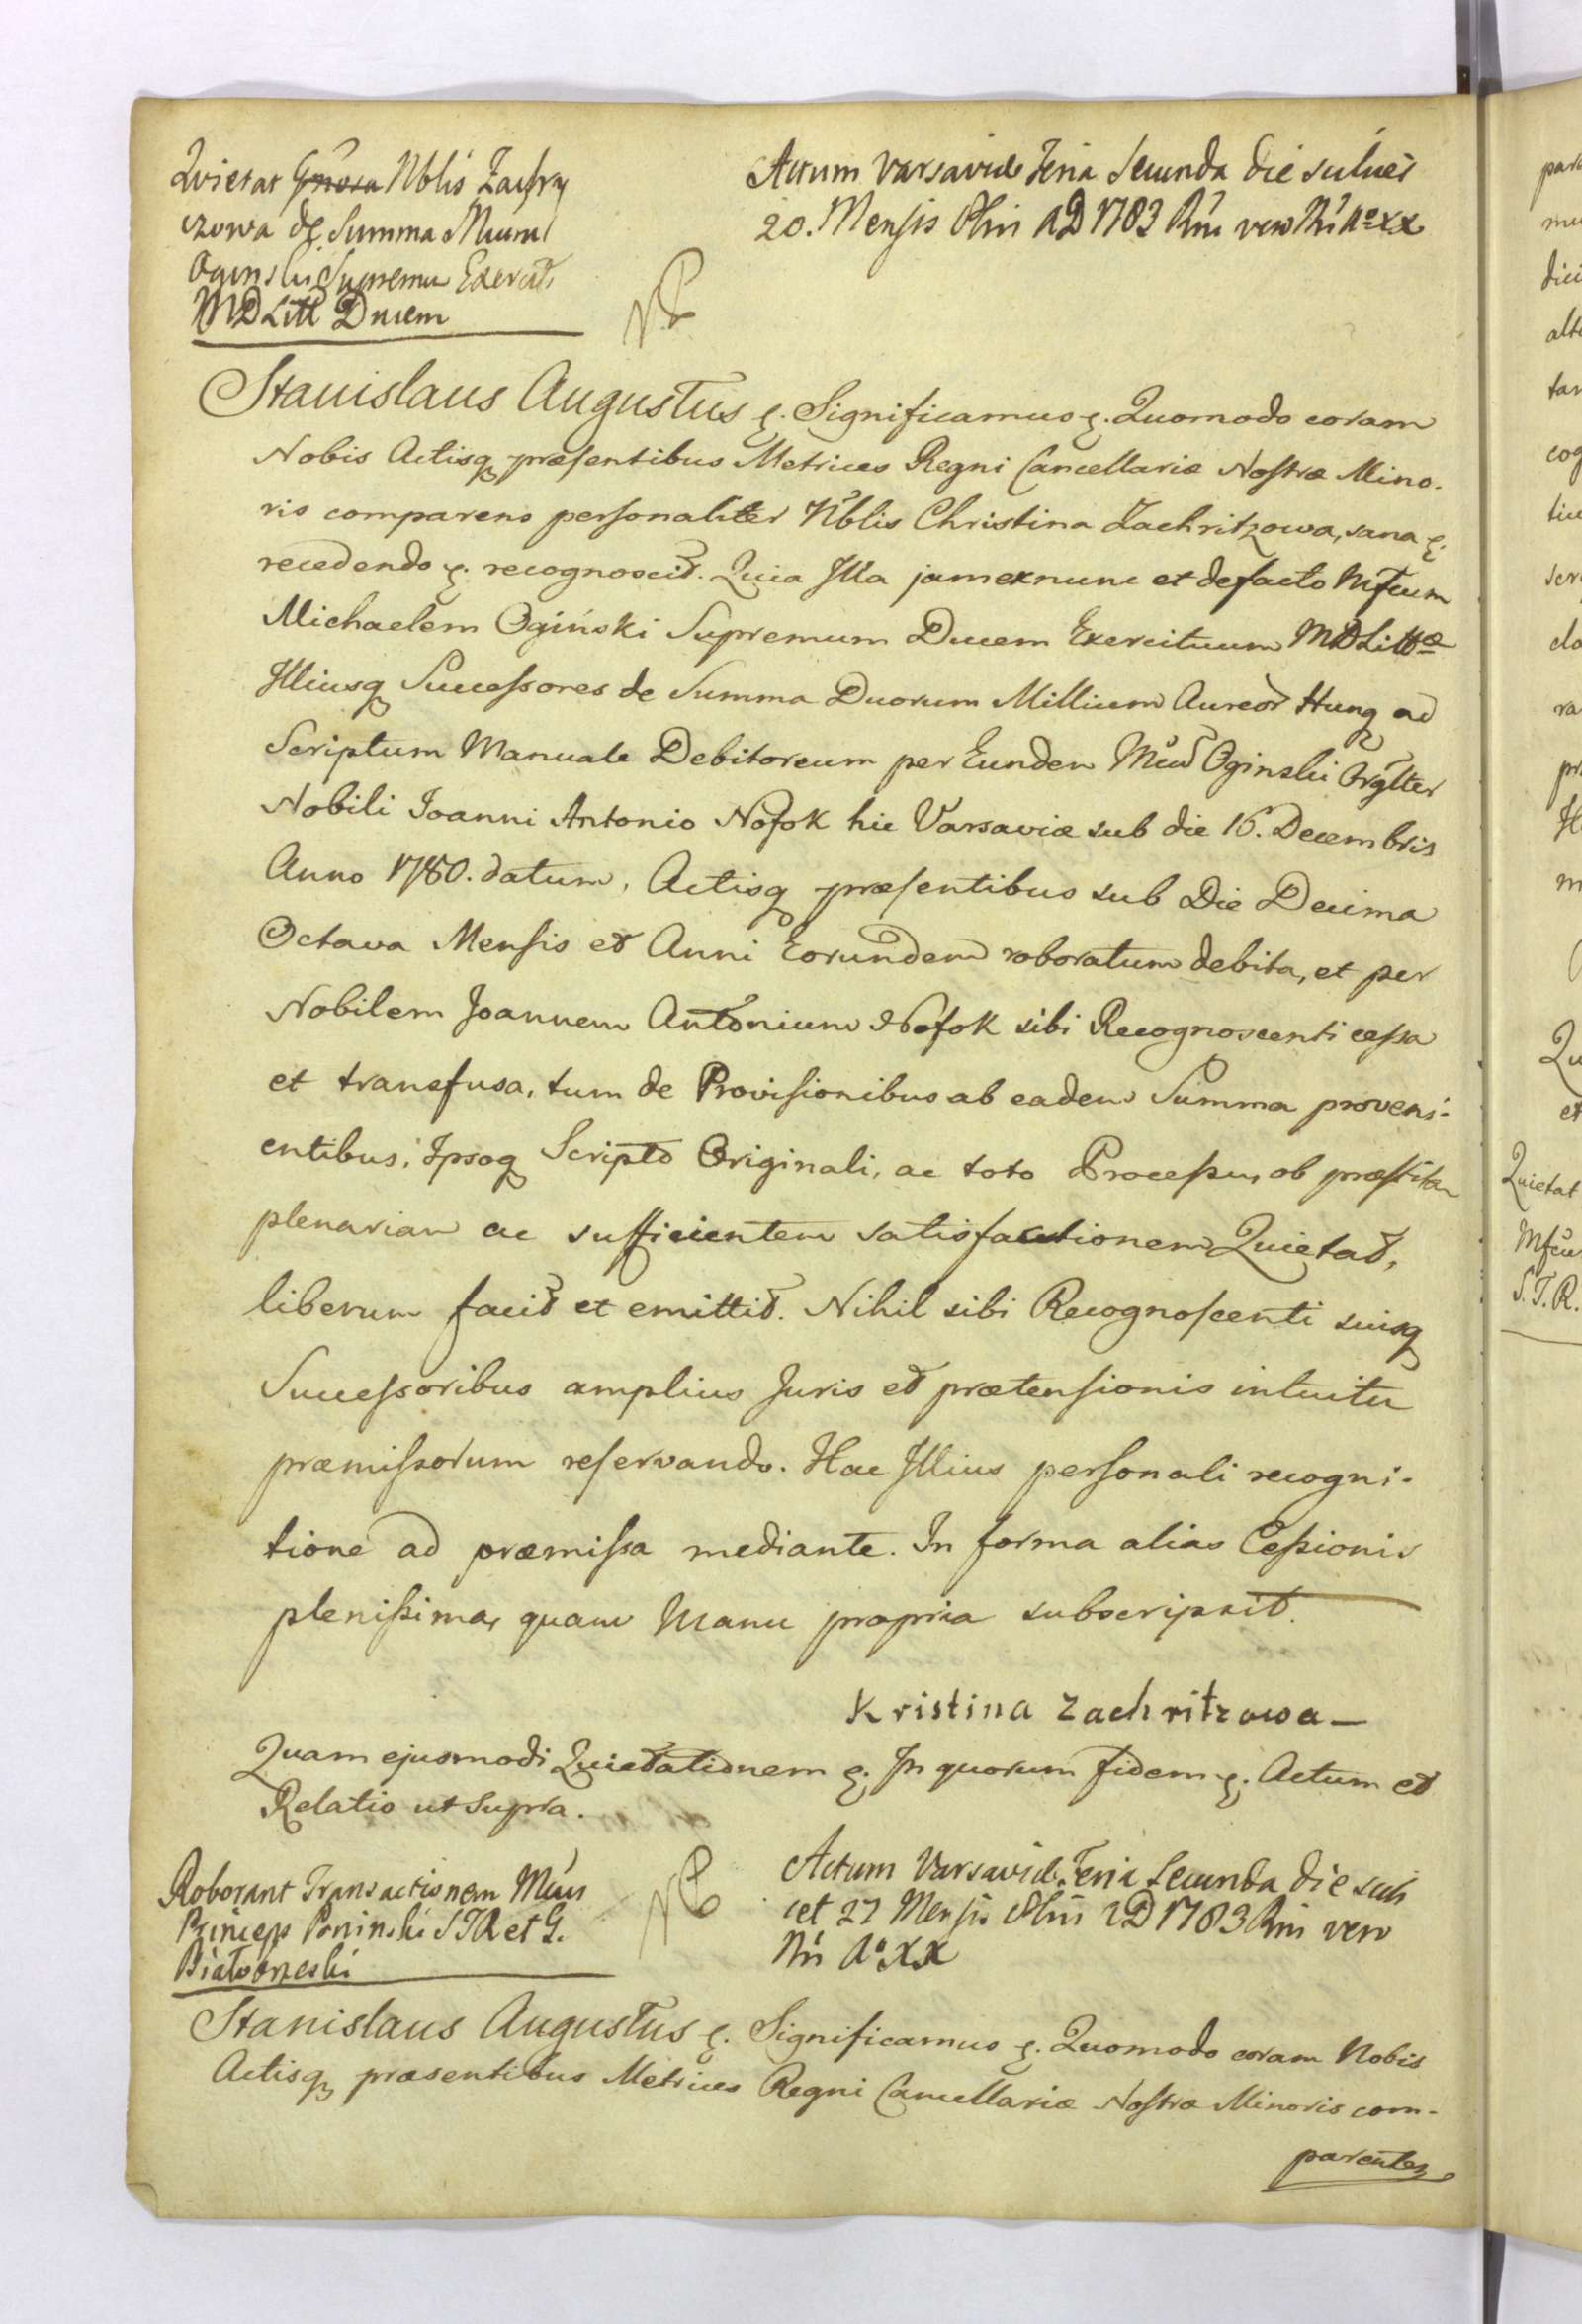 Quietat G̃nosa Nblis Zachry
czowa de Summa Mcum
Oginski Supremu Exercit.
MDLitt Ducem
Actum Varsaviæ Feria Secunda die scilicet
20. Mensis 8bris AD 1783 Rni vero Nri Aº XX
NP
Stanislaus Augustus &. Significamus &. Quomodo coram
Nobis Actisq præsentibus Metrices Regni Cancellariæ Nostræ Mino-
ris comparens personaliter Nblis Christina Zachritzowa, sana &.
recedendo &. recognoscit. Quia Illa jam ex nunc et de facto Mfcum
Michaelem Ogiński Supremum Ducem Exercituum MDLittæ
Illiusq Successores de Summa Duorum Millium Aureor Hung ad
Scriptum Manuale Debitoreum per Eundem Mcum Oginski Orgltter
Nobili Joanni Antonio Nosok hic Varsaviæ sub die 16. Decembris
Anno 1780. datum, Actisq præsentibus sub Die Decima
Octava Mensis et Anni Eorundem roboratum debita, et per
Nobilem Joannem Antonium Nosok sibi Recognoscenti cessa
et transfusa, tum de Provisionibus ab eadem Summa proveni-
entibus, Ipsoq Scripto Originali, ac toto Processu, ob præstitam
plenariam ac sufficientem satisfactionem Quietat,
liberum facit et emittit. Nihil sibi Recognoscenti suisq
Successoribus amplius Juris et prætensionis intuitu
præmissorum reservando. Hac Illius personali recogni-
tione ad præmissa mediante. In forma alias Cessionis
plenissima, quam Manu propria subscripsit.
Kristina Zachritzowa
Quam ejusmodi Quietationem &. In quorum fidem &. Actum et
Relatio ut supra.
Roborant Transactionem Mcus
Princeps Poninski STR et G.
Białobrzeski
NP
Actum Varsaviæ Feria Secunda die scili
cet 27 Mensis 8bris AD 1783 Rni vero
Nri Aº XX
Stanislaus Augustus &. Significamus &. Quomodo coram Nobis
Actisq præsentibus Metrices Regni Cancellariæ Nostræ Minoris com-
parentes
Quietat
S.T.R.